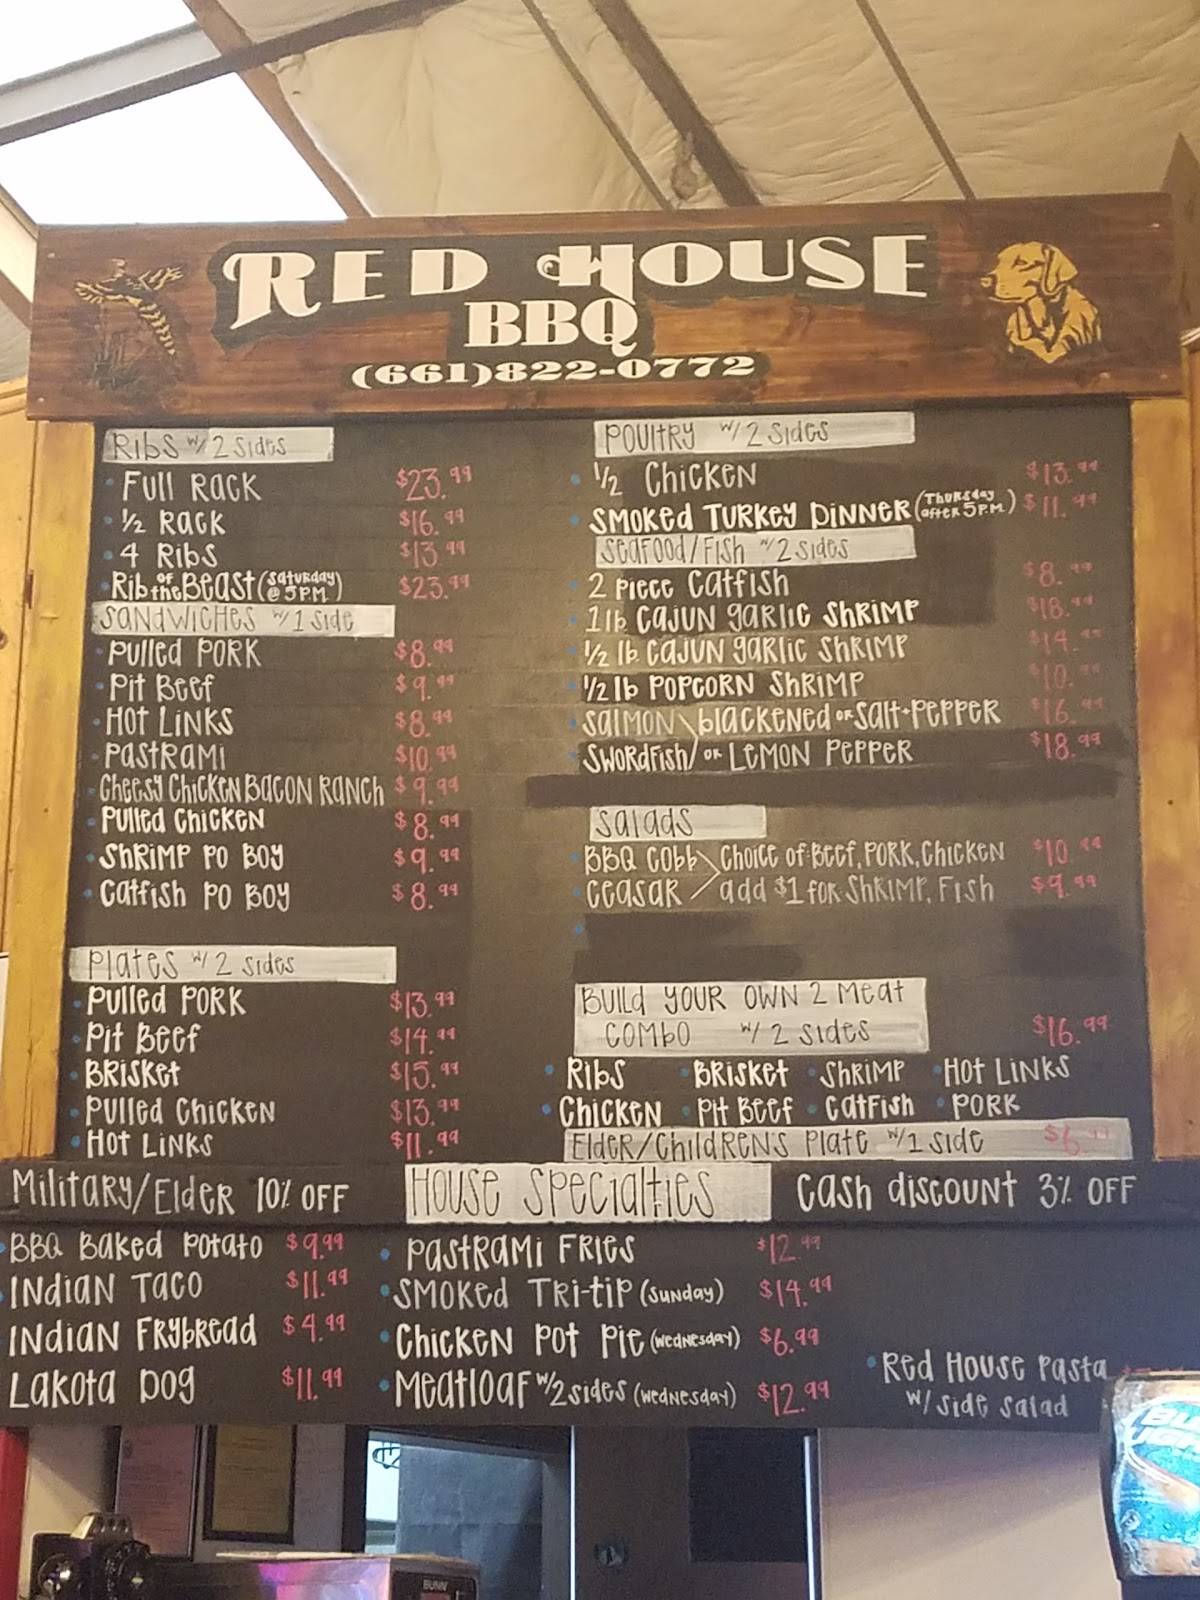 RED HOUSE
BBQ
(661)822-0772
Ribs w/ 2 sides
Full Rack $23.99
1/2 Rack $16.99
4 Ribs $13.99
Rib of the Beast (Saturday @ 5PM) $23.99
Sandwiches w/ 1 side
Pulled Pork $8.99
Pit Beef $9.99
Hot Links $8.99
Pastrami $10.99
Cheesy Chicken Bacon Ranch $9.99
Pulled Chicken $8.99
Shrimp Po Boy $9.99
Catfish Po Boy $8.99
Plates w/ 2 sides
Pulled Pork $13.99
Pit Beef $14.99
Brisket $15.99
Pulled Chicken $13.99
Hot Links $11.99
Poultry w/ 2 sides
1/2 Chicken $13.99
Smoked Turkey Dinner (Thursday after 5P.M.) $11.99
Seafood/Fish w/ 2 sides
2 Piece Catfish $8.99
1 lb Cajun Garlic Shrimp $18.99
1/2 lb Cajun Garlic Shrimp $14.99
1/2 lb Popcorn Shrimp $10.99
Salmon \ Blackened or Salt + Pepper $16.99
Swordfish / or Lemon Pepper $18.99
Salads
BBQ Cobb \ Choice of: Beef, Pork, Chicken $10.99
Ceasar / add $1 for Shrimp, Fish $9.99
Build Your Own 2 Meat
Combo w/ 2 sides $16.99
Ribs Brisket Shrimp Hot Links
Chicken Pit Beef Catfish Pork
Elder/Children's Plate w/ 1 side $6.99
Military/Elder 10% OFF House Specialties Cash discount 3% OFF
BBQ Baked Potato $9.99 Pastrami Fries $12.99
Indian Taco $11.99 Smoked Tri-tip (Sunday) $14.99
Indian Frybread $4.99 Chicken Pot Pie (Wednesday) $6.99
Lakota Dog $11.99 Meatloaf w/ 2 sides (Wednesday) $12.99
Red House Pasta
w/ side salad
BUNN